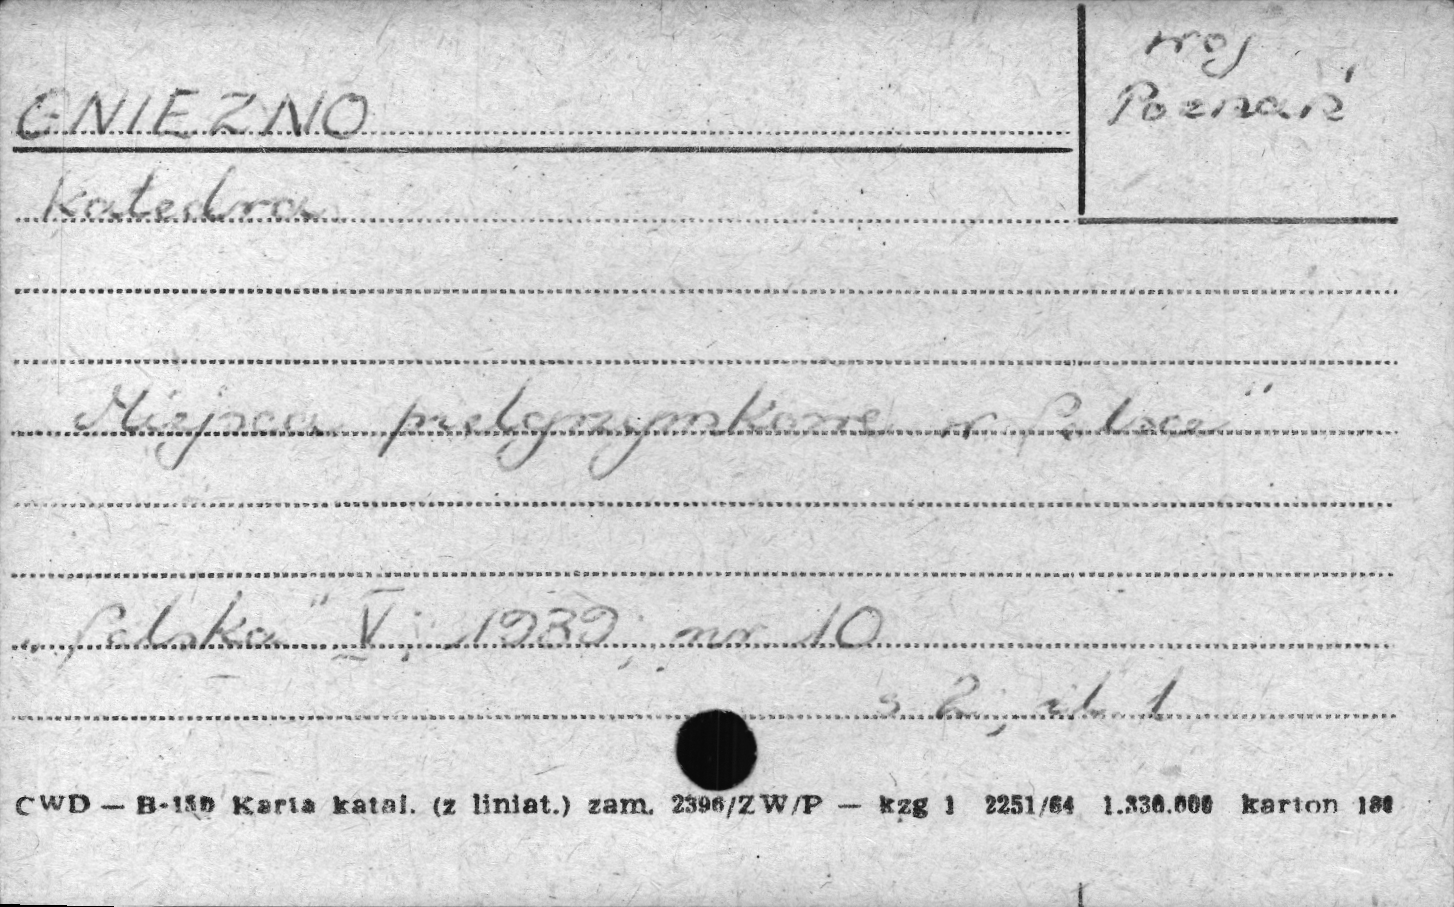 GNIEZNO
woj
Poznań
katedra
Miejsca pielgrzymkowe w Polsce"
„Polska" V; 1939; nr 10
s 2, il. 1
CWD — B-150 Karta katal. (z liniat.) zam. 2396/ZW/P — kzg 1 2251/64 1.330.000 karton 180